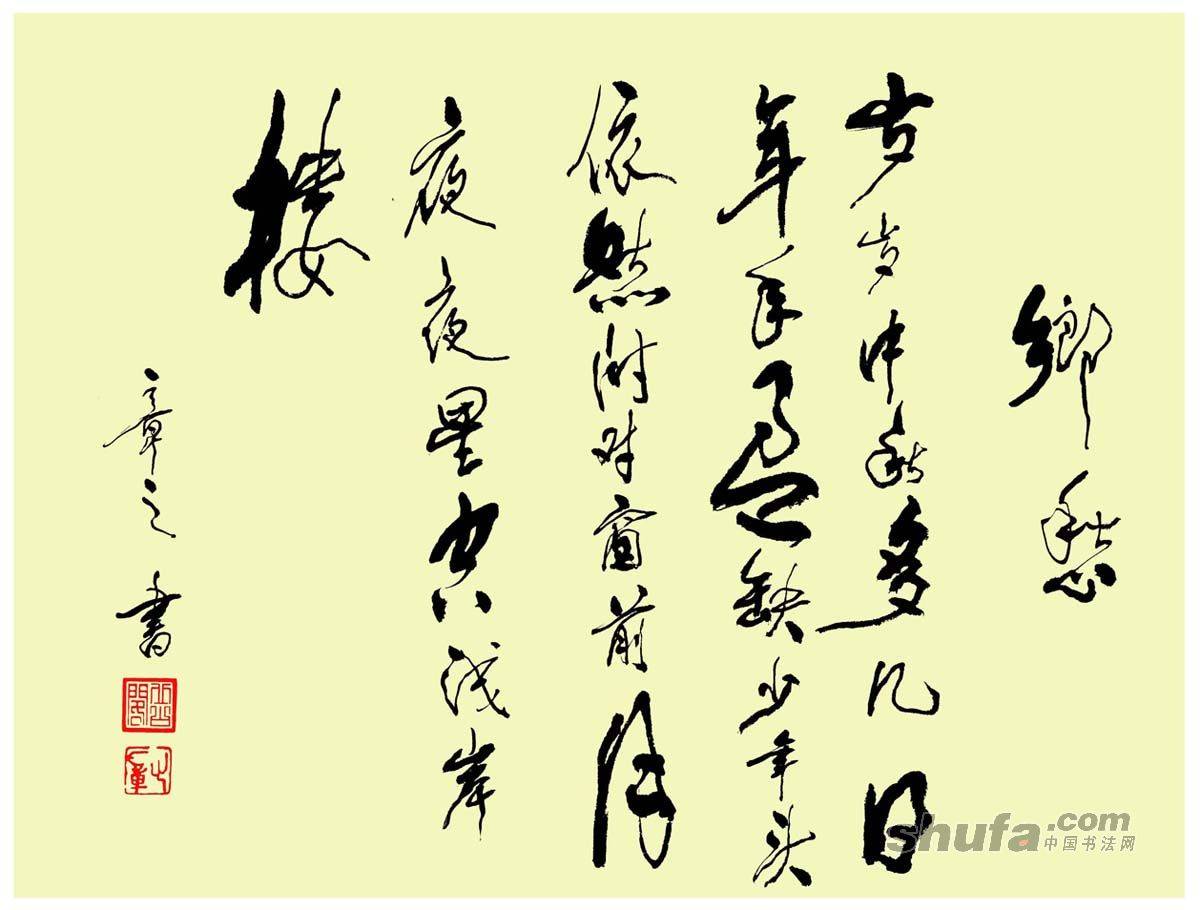 鄉愁
岁岁中秋多几日
年年盈缺少年头
依然对窗前月
夜夜星空浅岸
楼
章之书
shufa.com
中国书法网